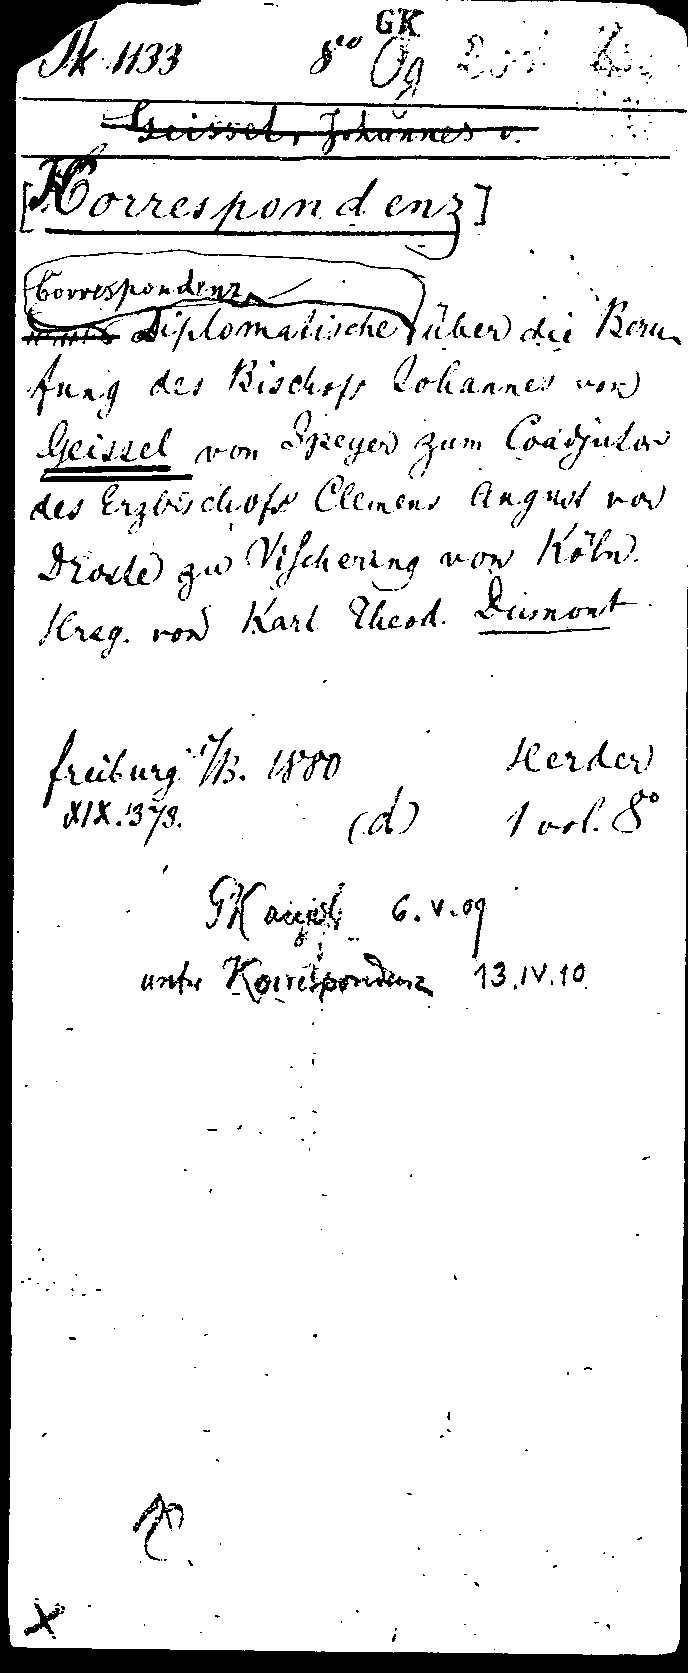 GK
Pk 1133 8° Og
Geissel, Johannes v.
[Korrespondenz]
Correspondenz
Diplomatische über die Beru-
fung des Bischofs Johannes von
Geissel von Speyer zum Coadjutor
des Erzbischofs Clemens August von
Droste zu Vischering von Köln.
Hrsg. von Karl Theod. Dumont
Freiburg i/B. 1880 Herder
XIX. 373. (d) 1 vol. 8°
GK 6.V.09
unter Korrespondenz 13.IV.10